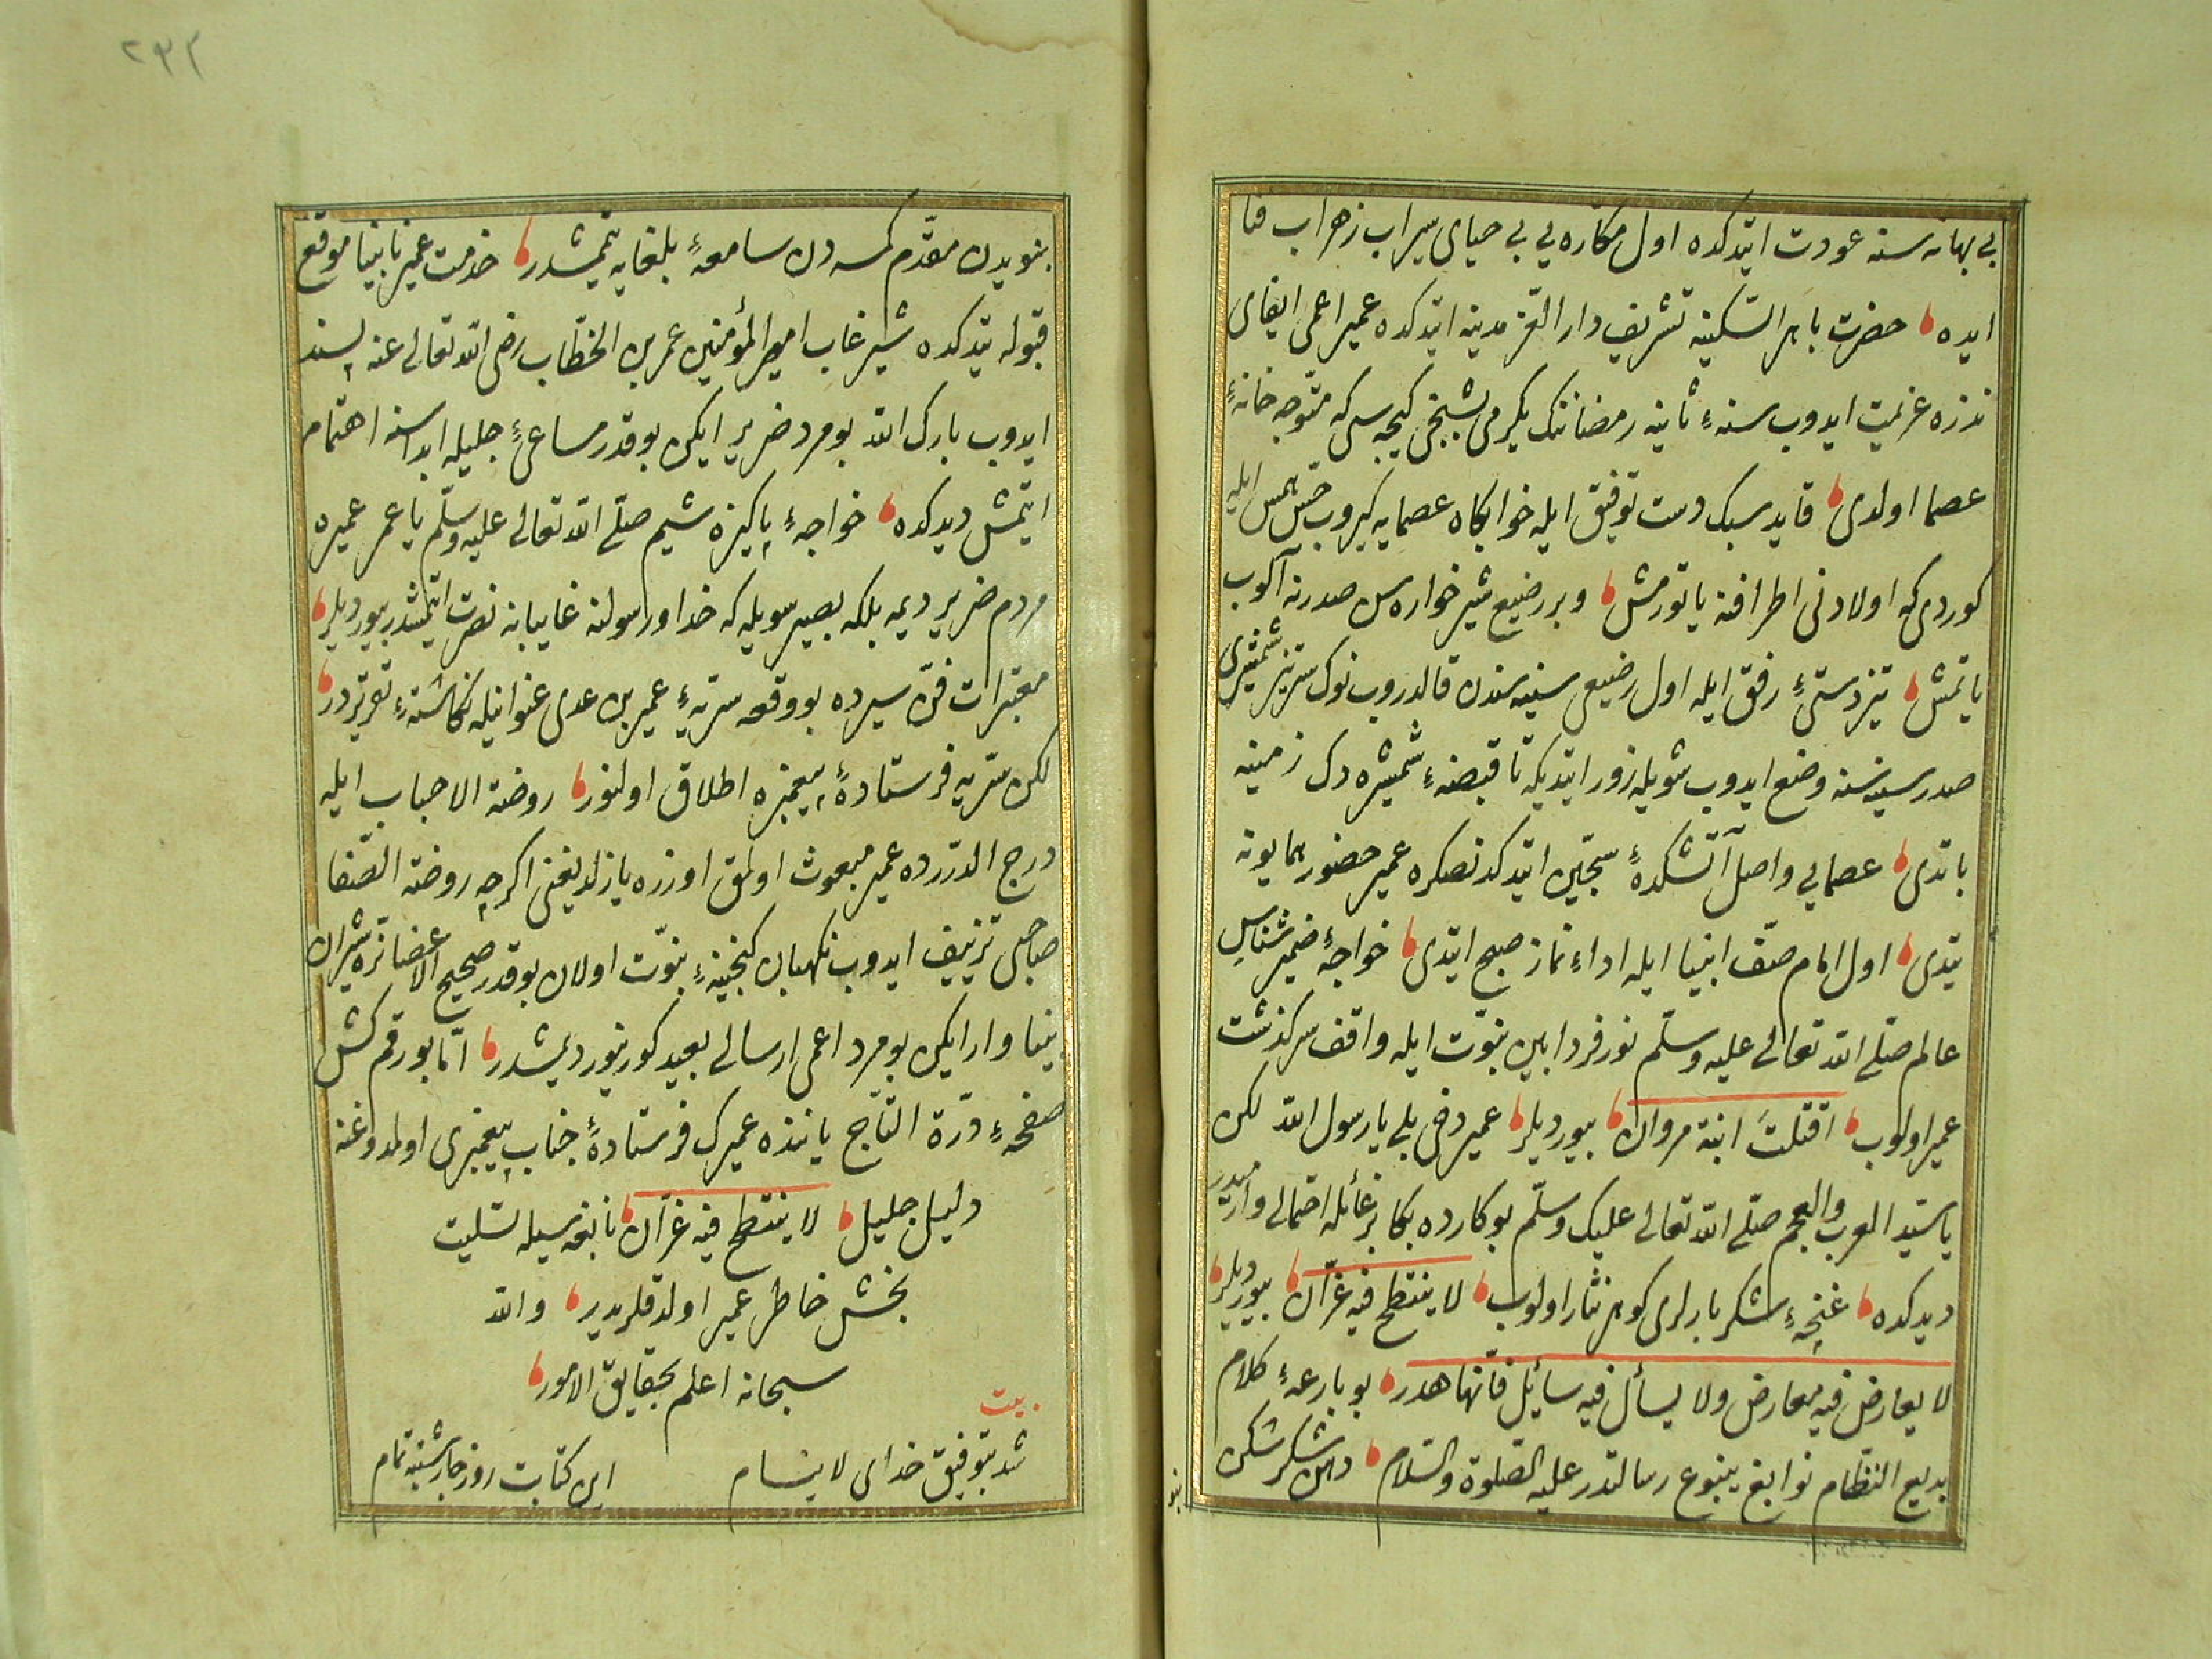 بی بهانه سنه عودت ایتدکده اول مکاره یی بی حیای سیراب زهراب فنا
ایده حضرت باهر السکینه تشریف دار العز مدینه ایتدکده عمیر اعمی ایفای
نذره عزیمت ایدوب سنهٔ ثانیه رمضاننک یکرمی بشنجی کیجه سی که متوجه خانهٔ
عصما اولدی قاید سبک دست توفیق ایله خوابکاه عصمایه کیروب حس لمس ایله
کوردی که اولادنی اطرافنه یاتورمش و بر رضیع شیر خواره سن صدرنه آکوب
یاتمش تیزدستئ رفق ایله اول رضیعی سینه سندن قالدروب نوک ستیز شمشیری
صدر سینه سنه وضع ایدوب شویله زور ایتدیکه تا قبضهٔ شمشیره دک زمینه
باتدی عصمایی واصل آتشکدهٔ سجین ایتدکدنصکره عمیر حضور همایونه
یتدی اول امام صف انبیا ایله اداء نماز صبح ایتدی خواجهٔ ضمیر شناس
عالم صلی الله تعالی علیه وسلم نور فردا بین نبوت ایله واقف سرکذشت
عمیر اولوب اقتلت ابنة مروان بیوردیلر عمیر دخی بلی یا رسول الله لکن
یا سید العرب والعجم صلی الله تعالی علیک وسلم بو کارده بکا بر غائله احتمالی وارمیدر
دیدکده غنچهٔ شکر بارلری کوهر نثار اولوب لا ینتطح فیه عنزان بیوردیلر
لا یعارض فیه معارض ولا یسأل فیه سائل فانها هدر بو بارعهٔ کلام
بدیع النظام نوابغ ینبوع رسالتدر علیه الصلوة والسلام دهن شکر شکن
بنو
۲۳۲
بنویدن مقدم کمسه دن سامعهٔ بلغایه یتمشدر خدمت عمیر نابینا موقع
قبوله یتدکده شیر غاب امیر المؤمنین عمر بن الخطاب رضی الله تعالی عنه پسند
ایدوب بارک الله بو مرد ضریر ایکن بو قدر مساعئ جلیله ابداسنه اهتمام
ایتمش دیدکده خواجهٔ پاکیزه شیم صلی الله تعالی علیه وسلم یا عمر عمیره
مردم ضریر دیمه بلکه بصیر سویله که خدا ورسولنه غایبانه نصرت ایتمشدر بیوردیلر
معتبرات فن سیرده بو وقعه سریهٔ عمیر بن عدی عنوانیله نکاشتهٔ تحریردر
لکن سریه فرستادهٔ پیغمبره اطلاق اولنور روضة الاحباب ایله
درج الدررده عمیر مبعوث اولمق اوزره یازلدیغنی اکرچه روضة الصفا
صاحبی تزییف ایدوب نکهبان کنجینهٔ نبوت اولان بو قدر صحیح الاعضا نره شیران
بینا وار ایکن بو مرد اعمی ارسالی بعید کورینور دیمشدر اما بو رقم کش
صفحهٔ درة التاج یاننده عمیرک فرستادهٔ جناب پیغمبری اولدوغنه
دلیل جلیل لا ینتطح فیه عنزان نابغه سیله تسلیت
بخش خاطر عمیر اولدقلریدر والله
سبحانه اعلم بحقایق الامور
بیت
شد بتوفیق خدای لا ینام این کتابت روز چارشنبه تمام